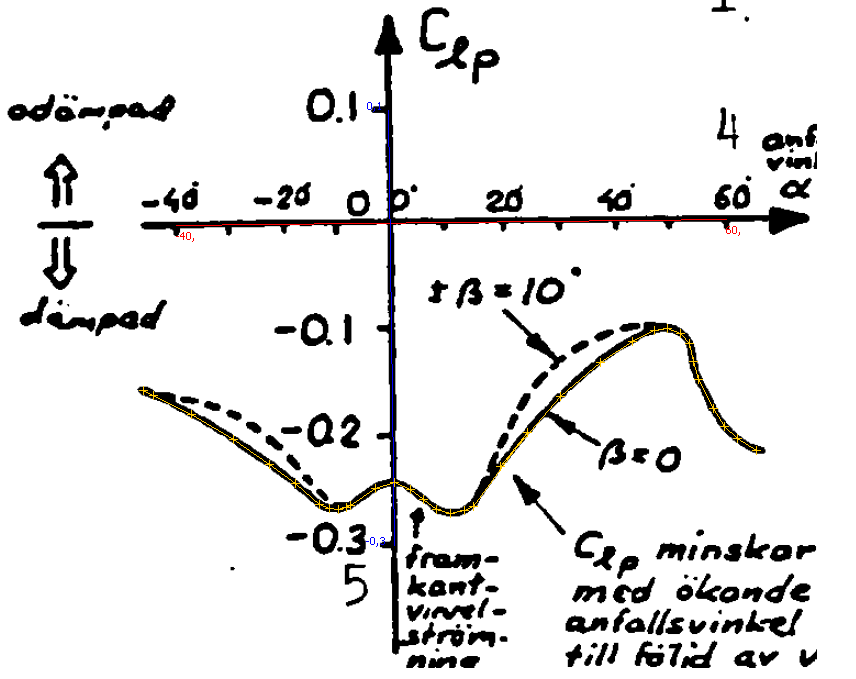 1.
C lp
odämpad
0.1
0,1
4
anf
vinl
-40° -20° 0 0° 20° 40° 60° α
-40, 60,
± β = 10°
dämpad
-0.1
-0.2
β = 0
-0.3
-0,3
5
fram-
kant-
virvel-
ström-
ning
C lp minskar
med ökande
anfallsvinkel
till följd av v